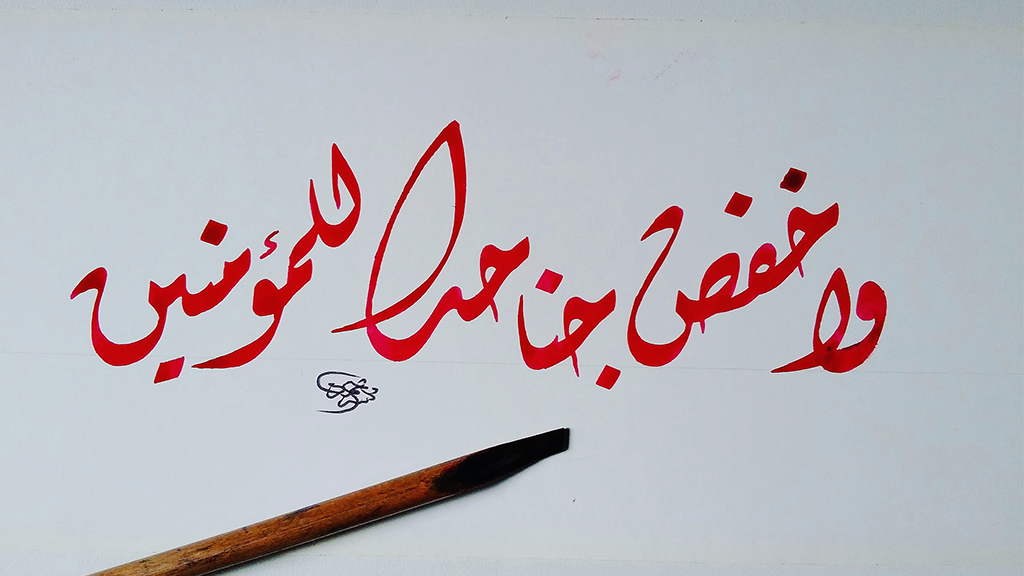 واخفض جناحك للمؤمنين